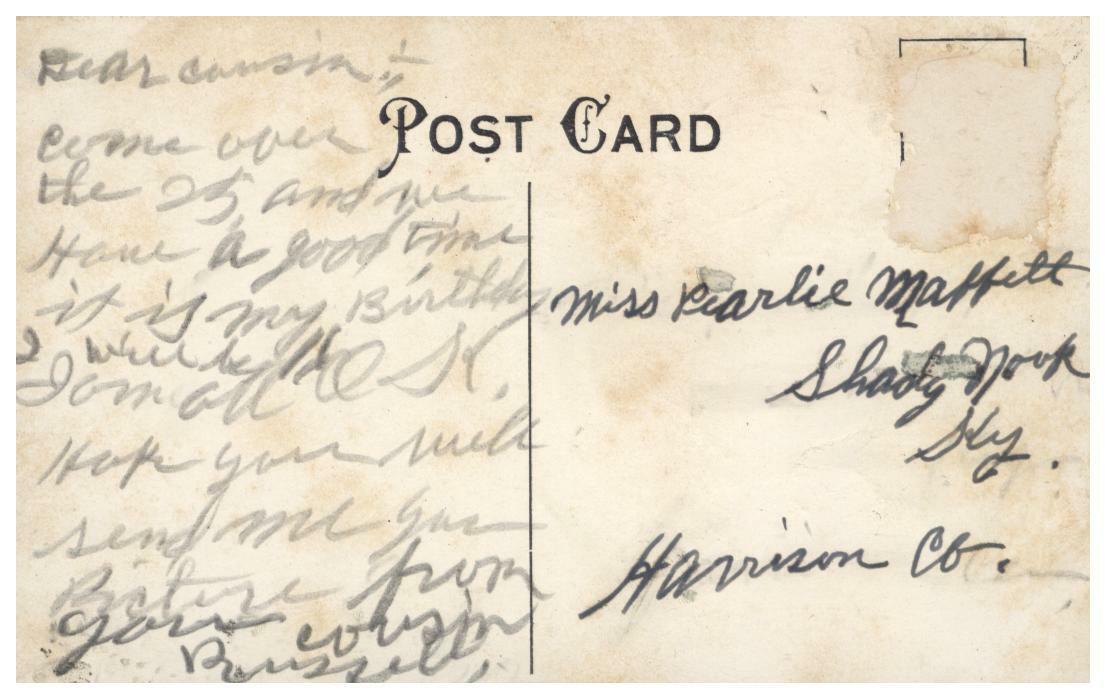 Dear cousin :-
come over
the 25 and we
Have a good time
it is my Birthday
I will be 11
I am all O K.
Hope you will
send me you
Picture from
your cousin
Russell.
POST CARD
Miss Pearlie Maffett
Shady Nook
Ky.
Harrison Co.